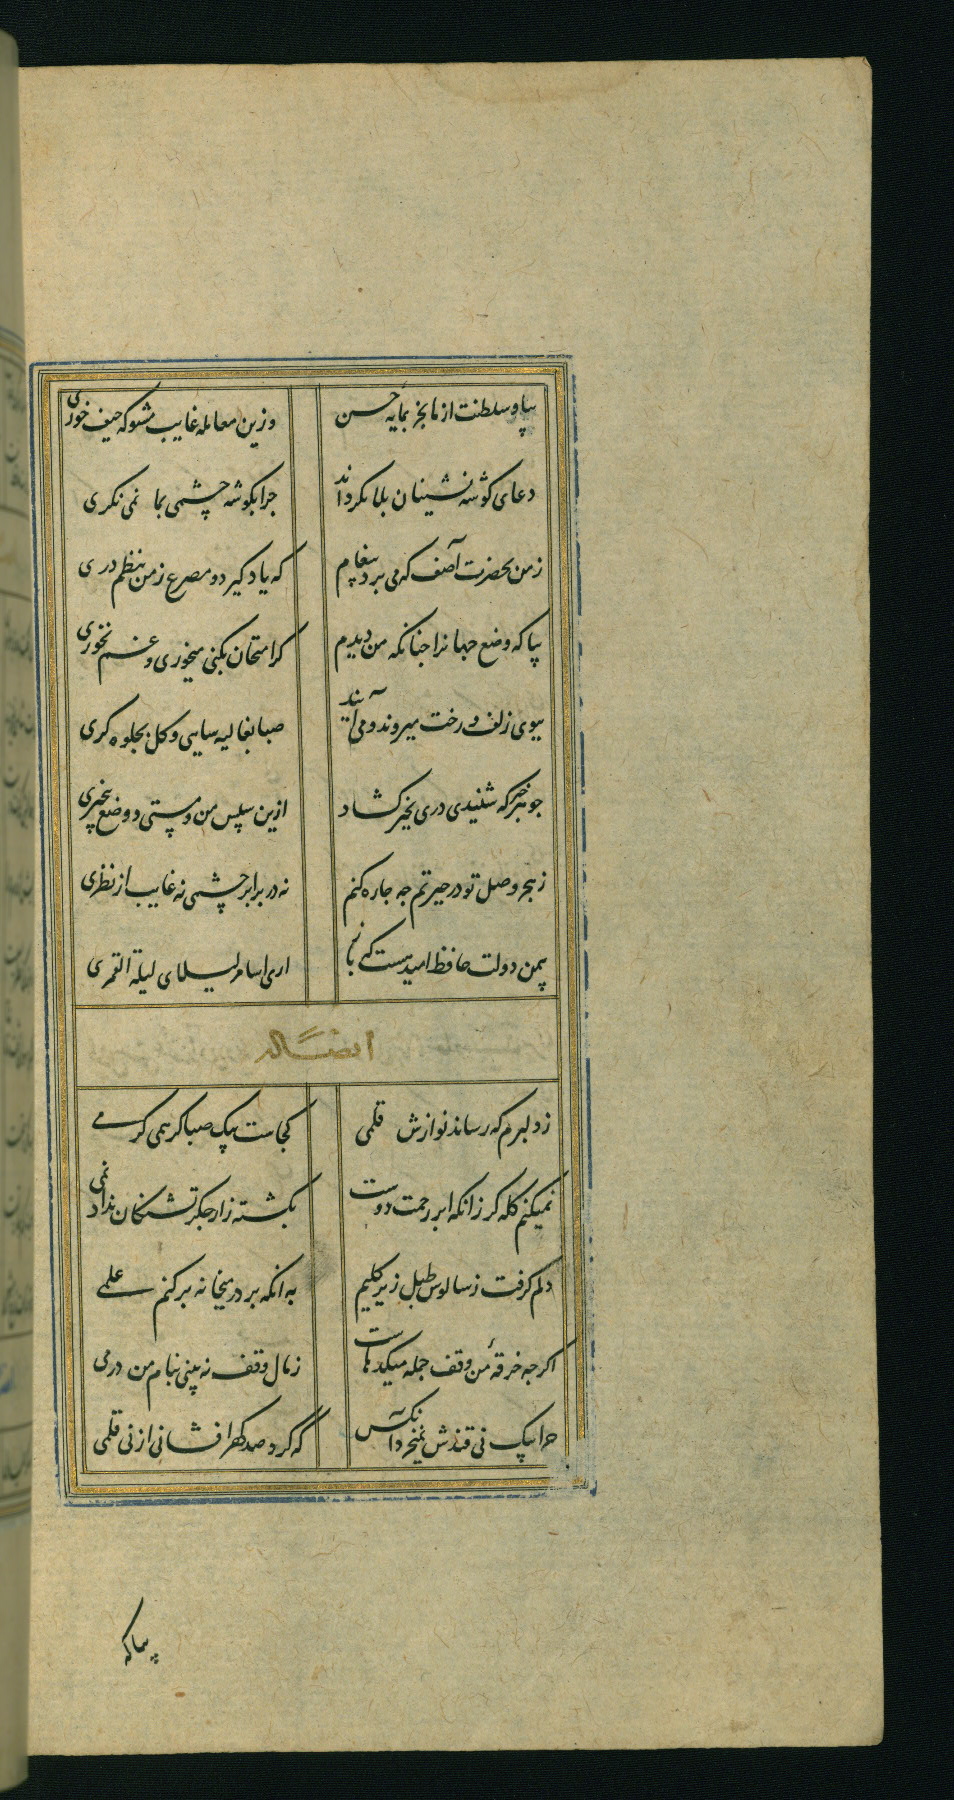 بیا و سلطنت از ما بخر بمایه حسن
وزین معامله غایب مشو که حیف خوری
دعای گوشه نشینان بلا بگرداند
چرا بگوشه چشمی بما نمی نگری
ز من بحضرت آصف که می برد پیغام
که یاد گیر دو مصرع ز من بنظم دری
بیا که وضع جهانرا چنانکه من دیدم
گر امتحان بکنی میخوری و غم نخوری
ببوی زلف و رخت میروند و می آیند
صبا بغالیه سایی و گل بجلوه گری
چو هر خبر که شنیدی دری بخیر گشاد
ازین سپس من و مستی و وضع بیخبری
ز هجر و وصل تو در حیرتم چه چاره کنم
نه در برابر چشمی نه غایب از نظری
بیمن دولت حافظ امید هست که باز
اری اسامر لیلای لیلة القمری
ایضا له
ز دلبرم که رساند نوازش قلمی
کجاست پیک صبا گر همی کرمی
نمیکنم گله گر زانکه ابر رحمت دوست
بکشته زار جگر تشنگان نداد نمی
دلم گرفت ز سالوس طبل زیر گلیم
به آنکه بر در میخانه بر کنم علمی
اگرچه خرقه من وقف جمله میکدهاست
ز مال وقف نه بینی بنام من درمی
چرا بیک نی قندش نمیخرد آنکس
که کرد صد گهرافشانی از نی قلمی
بیا که